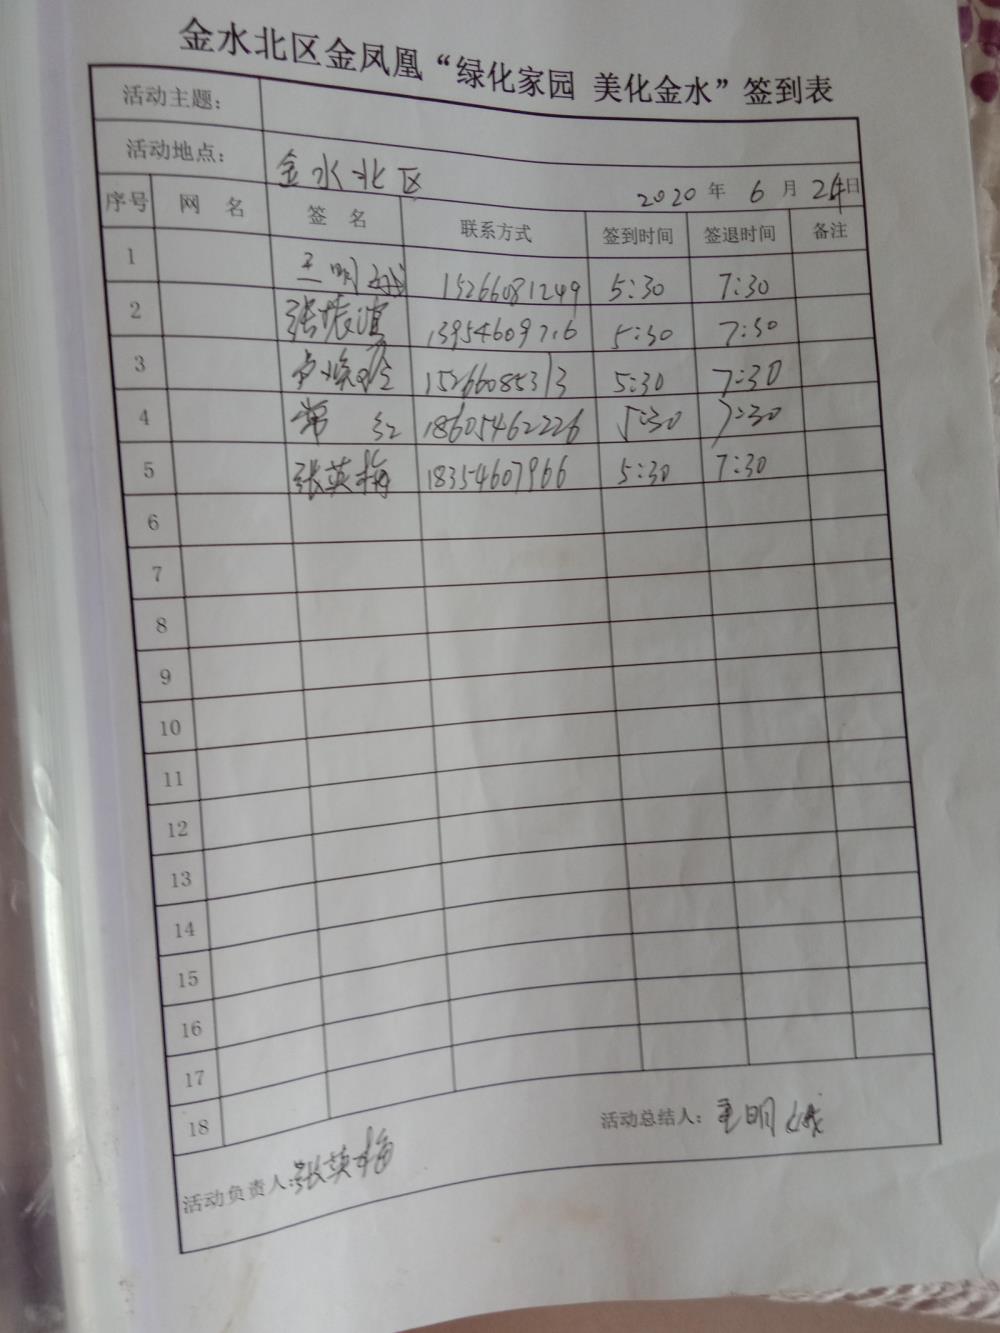 金水北区金凤凰“绿化家园 美化金水”签到表
活动主题：
活动地点： 金水北区 2020 年 6 月 24日
序号 网 名 签 名 联系方式 签到时间 签退时间 备注
1 王明娥 15266081249 5:30 7:30
2 张振谊 13954609716 5:30 7:30
3 卢焕 15266085313 5:30 7:30
4 常 红 18605462226 5:30 7:30
5 张英梅 18354607966 5:30 7:30
6
7
8
9
10
11
12
13
14
15
16
17
18
活动负责人：张英梅 活动总结人：王明娥